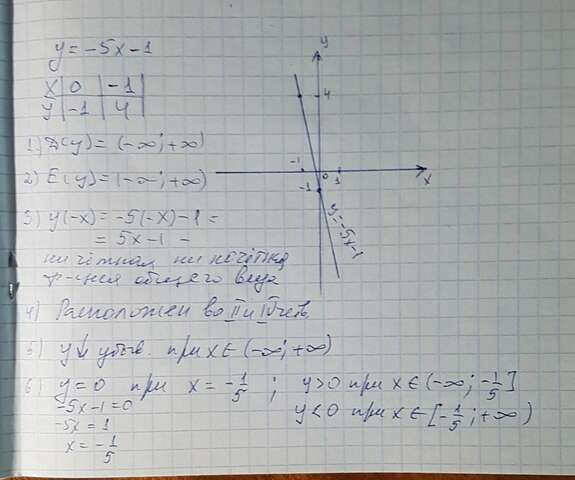 y = -5x - 1
x | 0 | -1 |
y | -1 | 4 |
1) D(y) = (-∞; +∞)
2) E(y) = (-∞; +∞)
3) y(-x) = -5(-x) - 1 =
= 5x - 1 -
ни чётная ни нечётная
ф-ция общего вида
4) Расположен во II и IV четв.
5) y↓ убыв. при x ∈ (-∞; +∞)
6) y = 0 при x = -1/5 ; y > 0 при x ∈ (-∞; -1/5]
-5x - 1 = 0 y < 0 при x ∈ [-1/5; +∞)
-5x = 1
x = -1/5
y
4
-1 0 1 x
-1
y = -5x - 1